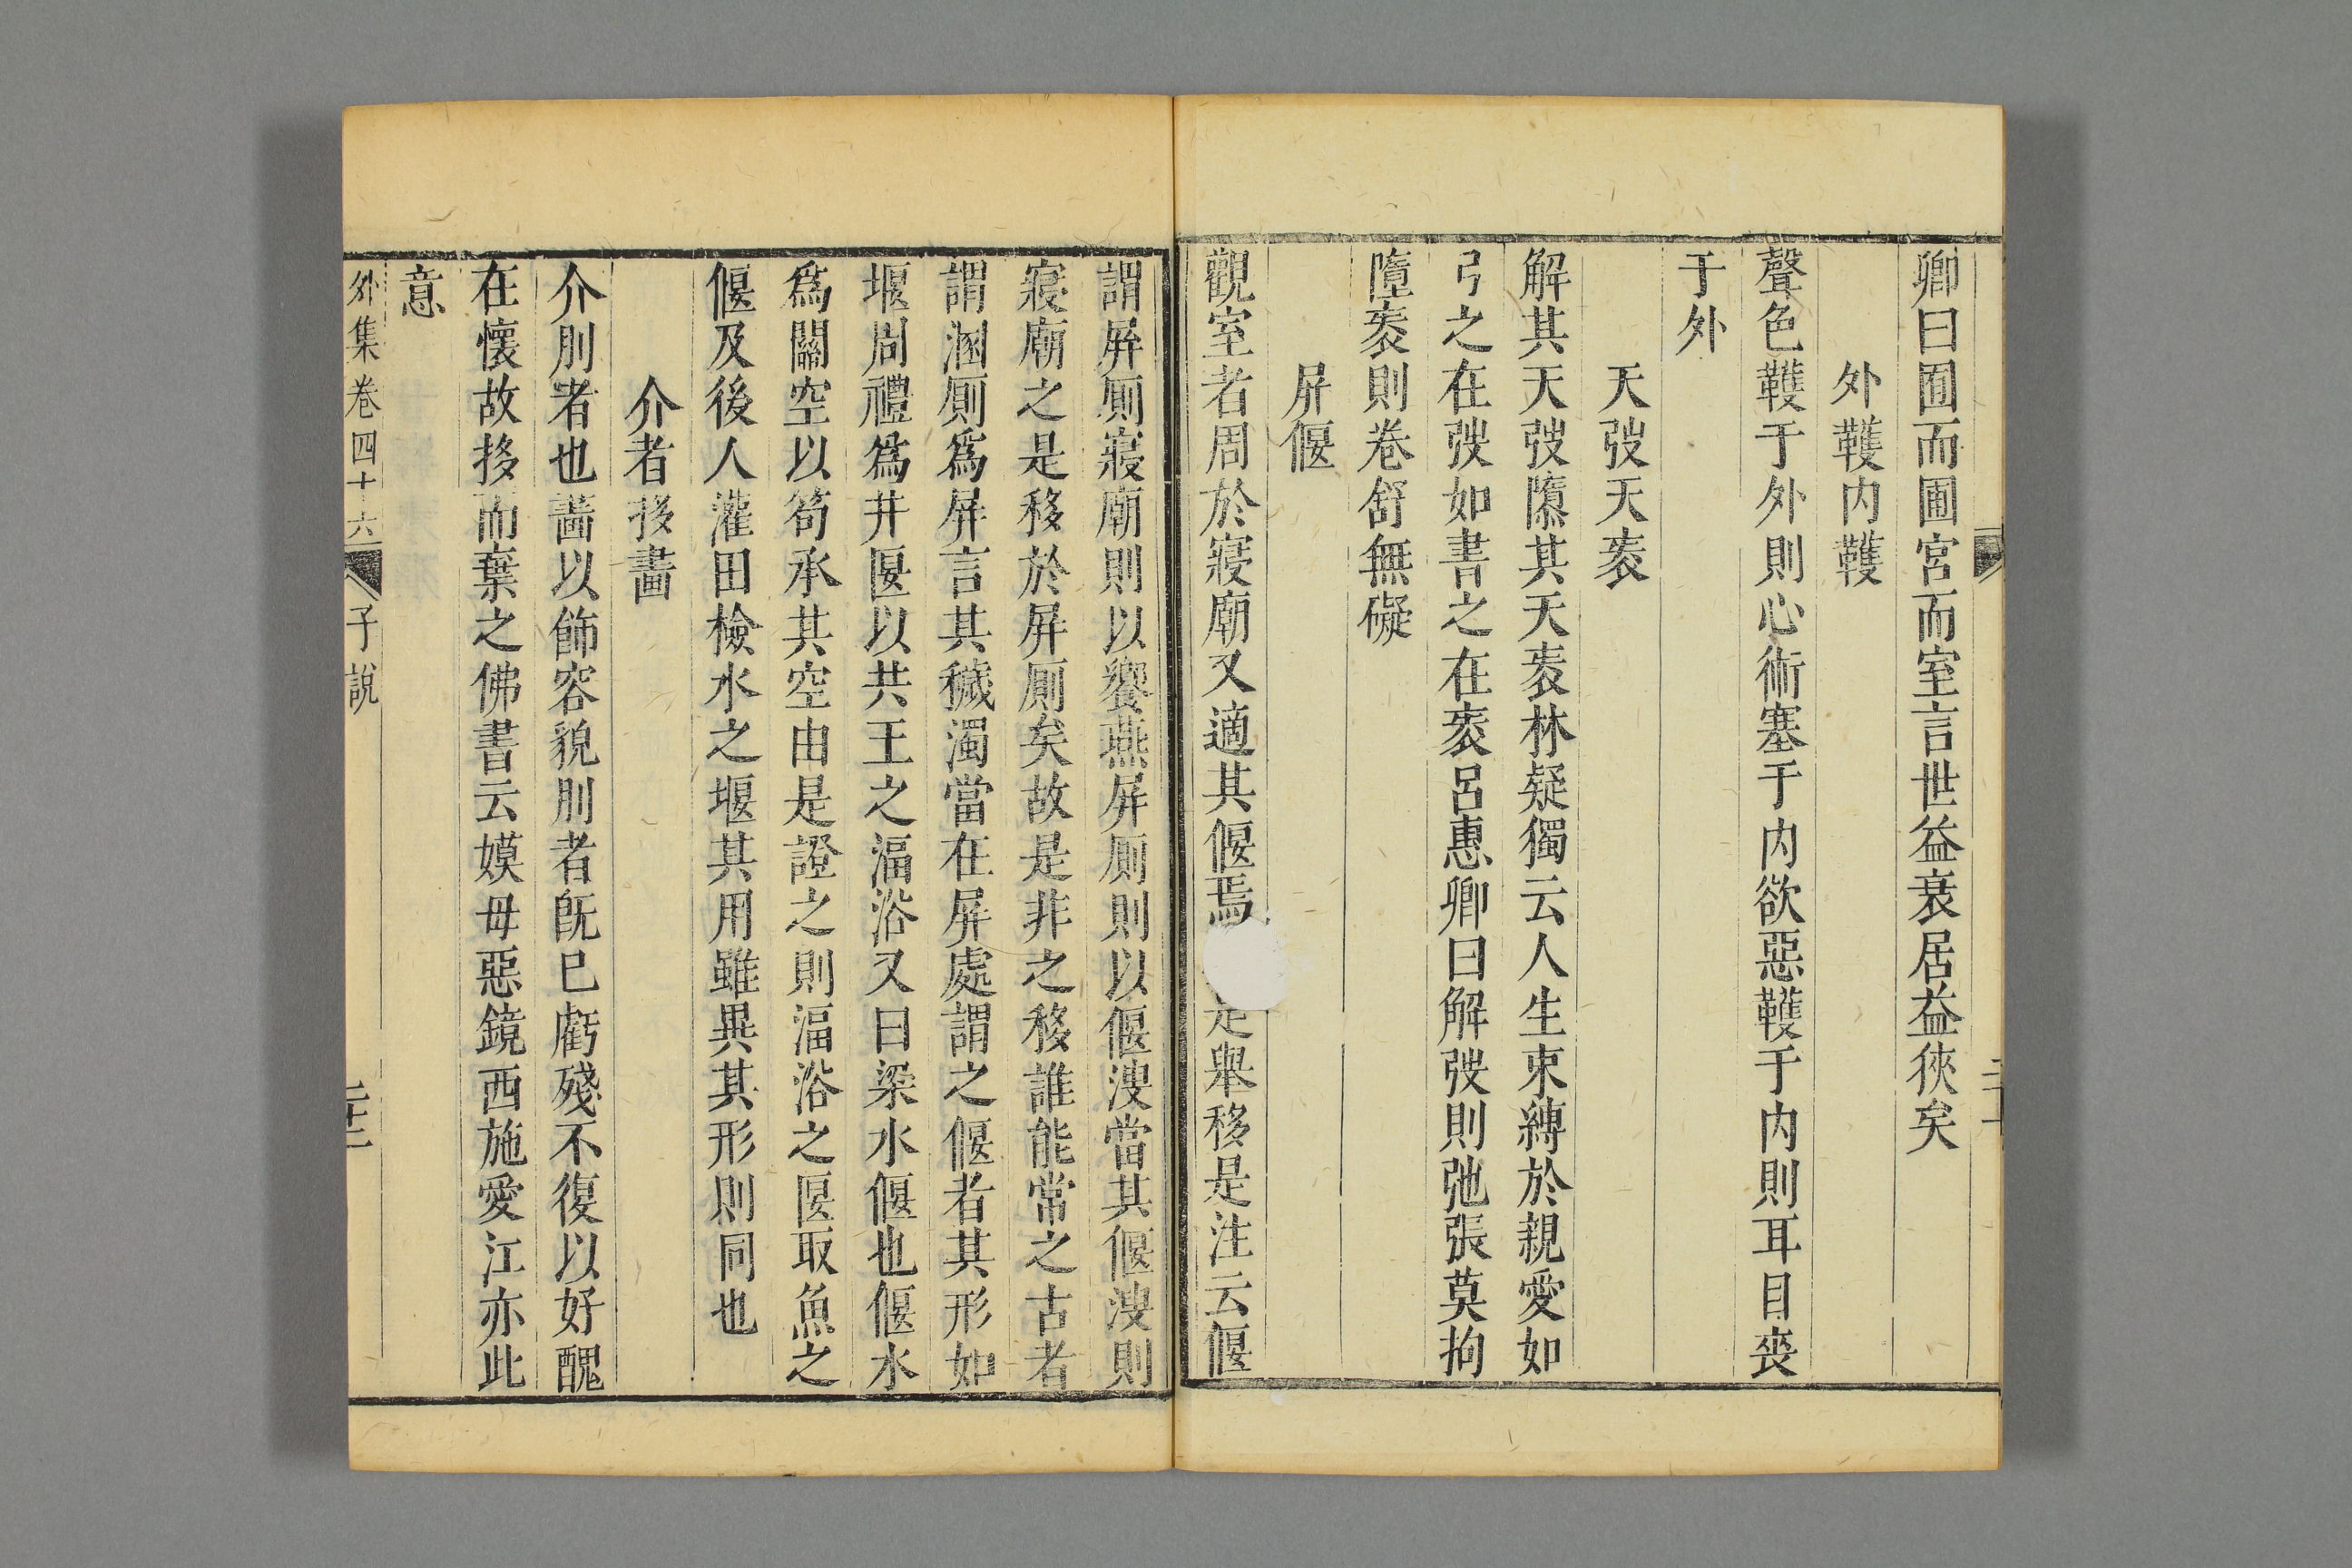 卿曰囿而圃宮而室言世益衰居益狹矣
外韄内韄
聲色韄于外則心術塞于内欲惡韄于内則耳目喪
于外
天弢天袠
解其天弢隳其天袠林疑獨云人生束縛於親愛如
弓之在弢如書之在袠呂惠卿曰解弢則弛張莫拘
墮袠則卷舒無礙
屏偃
觀室者周於寢廟又適其偃焉是舉移是注云偃
謂屏厠寢廟則以饗燕屏厠則以偃溲當其偃溲則
寢廟之是移於屏厠矣故是非之移誰能常之古者
謂溷厠爲屏言其穢濁當在屏處謂之偃者其形如
堰周禮爲井匽以共王之湢浴又曰梁水偃也偃水
爲關空以笱承其空由是證之則湢浴之匽取魚之
偃及後人灌田檢水之堰其用雖異其形則同也
介者拸畵
介刖者也畵以飾容貌刖者旣已虧殘不復以好醜
在懷故拸而棄之佛書云嫫母惡鏡西施愛江亦此
意
外集卷四十六 子說 二十二